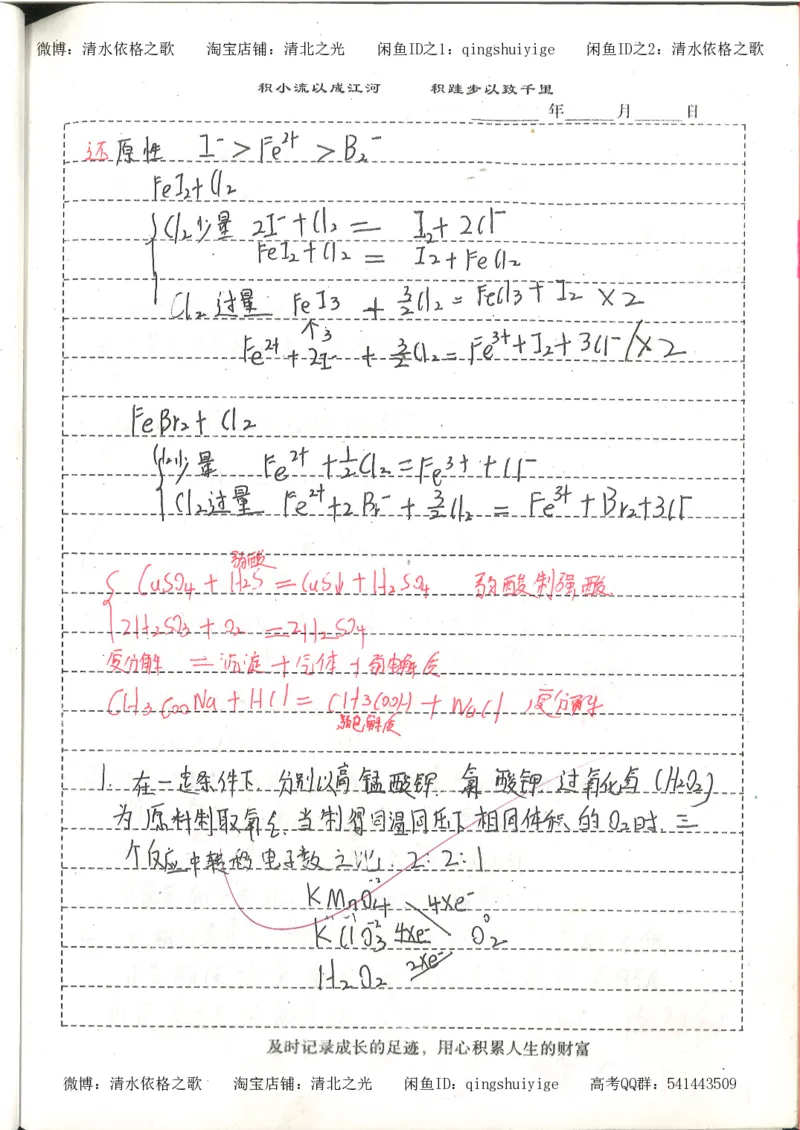 微博：清水依格之歌 淘宝店铺：清北之光 闲鱼ID之1：qingshuiyige 闲鱼ID之2：清水依格之歌
积小流以成江河 积跬步以致千里
年 月 日
还原性 I⁻ > Fe²⁺ > B₂⁻
FeI₂+Cl₂
Cl₂少量 2I⁻+Cl₂ = I₂+2Cl⁻
FeI₂+Cl₂ = I₂+FeCl₂
Cl₂过量 FeI3 + 3/2Cl₂ = FeCl3+I₂ ×2
↑3
Fe²⁺+2I⁻ + 3/2Cl₂ = Fe³⁺+I₂+3Cl⁻/×2
FeBr₂+Cl₂
Cl₂少量 Fe²⁺+1/2Cl₂=Fe³⁺+Cl⁻
Cl₂过量 Fe²⁺+2Br⁻+3/2Cl₂ = Fe³⁺+Br₂+3Cl⁻
弱酸
CuSO₄+H₂S=CuS↓+H₂SO₄ 弱酸制强酸
2H₂SO₃+O₂=2H₂SO₄
复分解 = 沉淀+气体+弱电解质
CH₃COONa+HCl=CH3COOH+NaCl 复分解
弱电解质
1. 在一定条件下，分别以高锰酸钾、氯酸钾、过氧化氢（H₂O₂）
为原料制取氧气，当制得同温同压下相同体积的O₂时，三
个反应中转移电子数之比：2：2：1
-2
KMnO₄ 4×e⁻
-1 -2 0
KClO₃ 4×e⁻ O₂
2×e⁻
H₂O₂
及时记录成长的足迹，用心积累人生的财富
微博：清水依格之歌 淘宝店铺：清北之光 闲鱼ID：qingshuiyige 高考QQ群：541443509